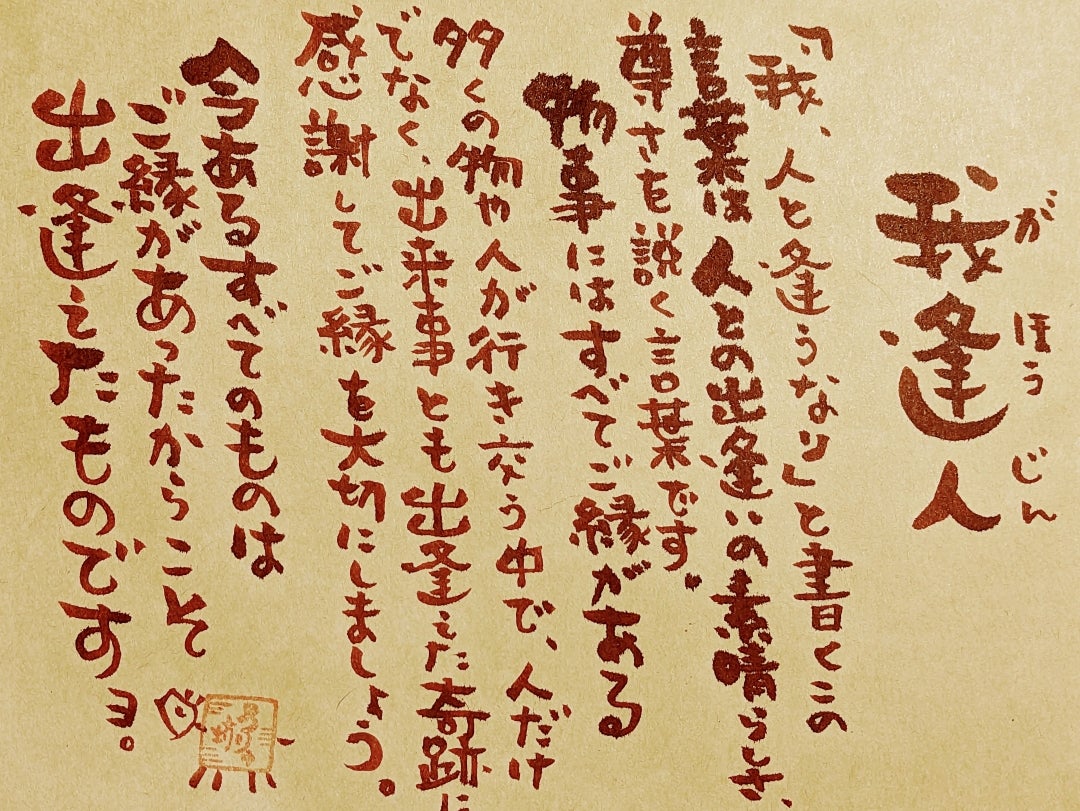 我逢人
が ほう じん
「我、人と逢うなり」と書くこの
言葉は人との出逢いの素晴らしさ、
尊さを説く言葉です。
物事にはすべてご縁がある
多くの物や人が行き交う中で、人だけ
でなく、出来事とも出逢えた奇跡に
感謝してご縁を大切にしましょう。
今あるすべてのものは
ご縁があったからこそ
出逢えたものです。ヨ。